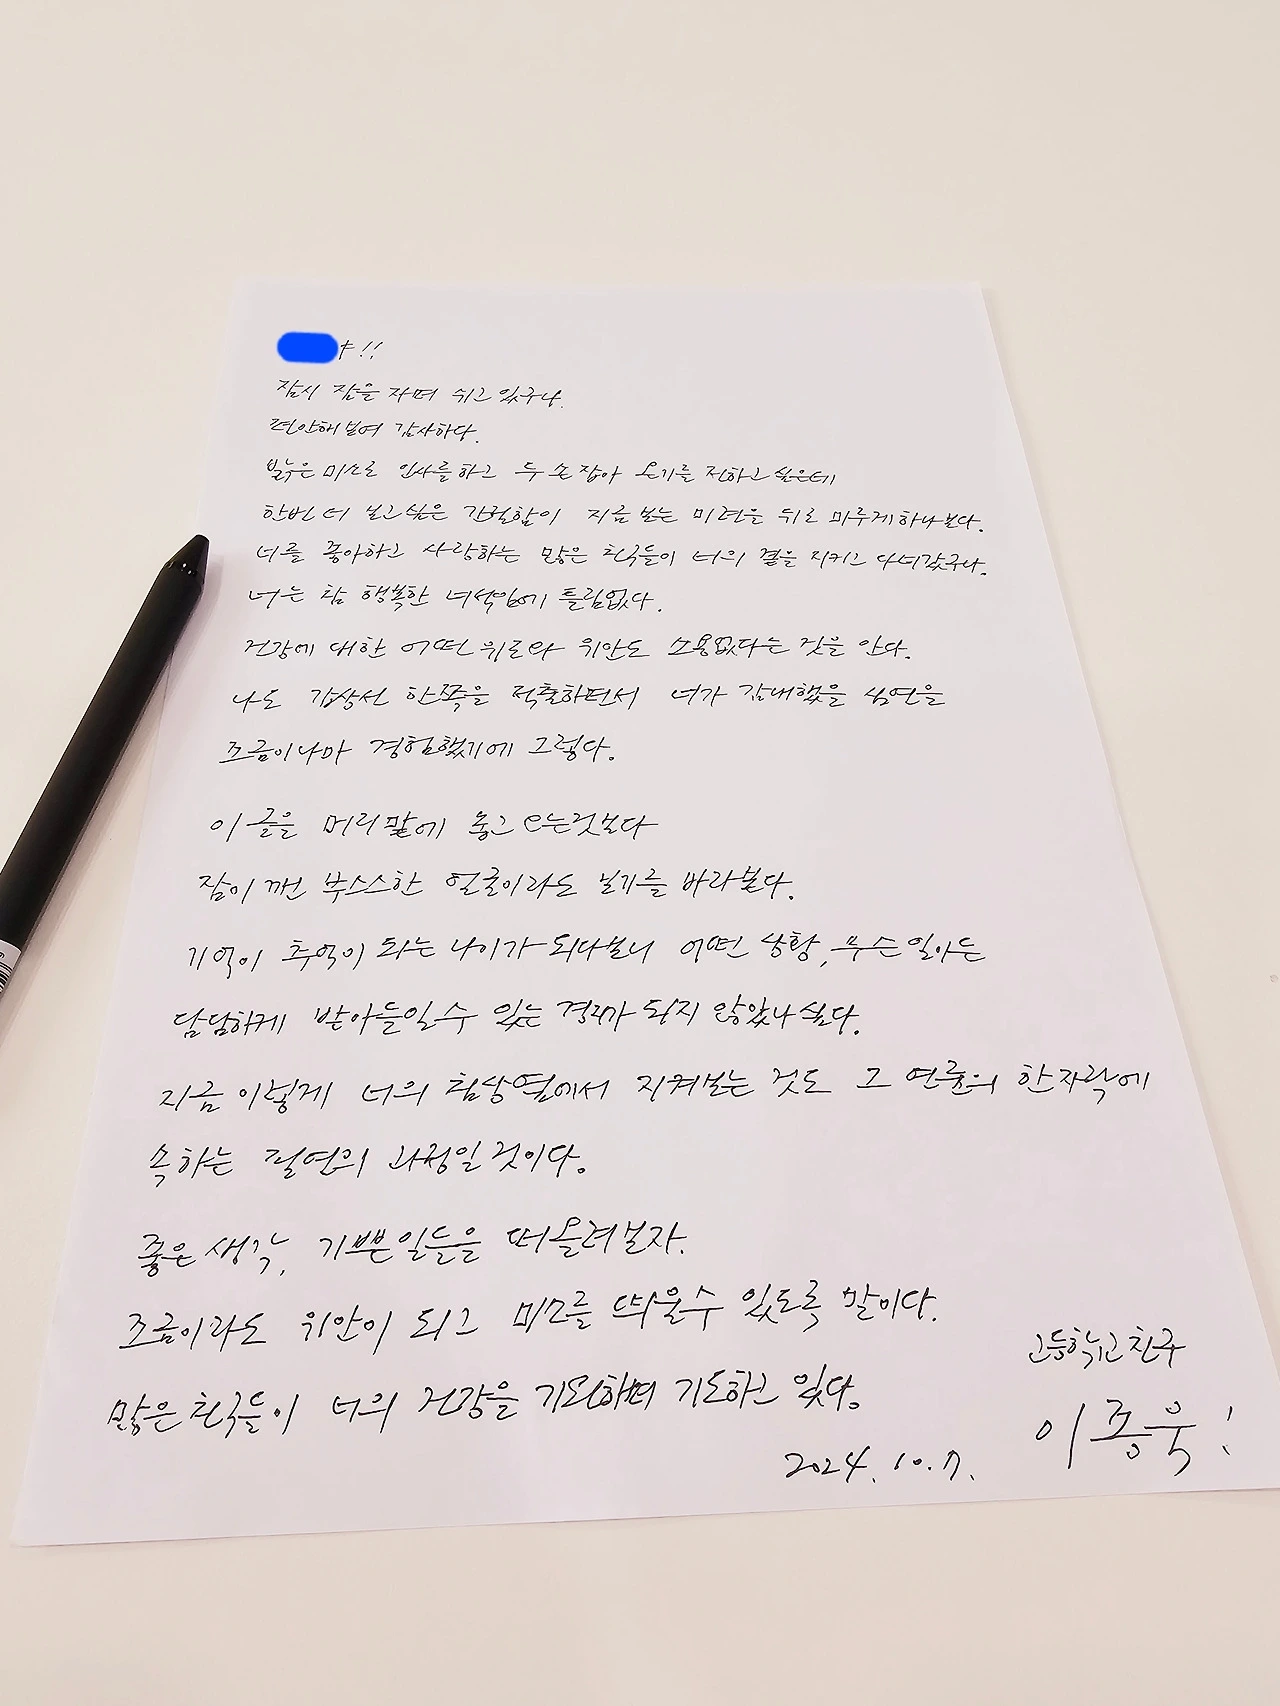 야!!
잠시 잠을 자며 쉬고 있구나.
편안해보여 감사하다.
밝은 미소로 인사를하고 두 손 잡아 온기를 전하고 싶은데
한번 더 보고싶은 간절함이 지금 보는 미련을 뒤로 미루게하나보다.
너를 좋아하고 사랑하는 많은 친구들이 너의 곁을 지키고 다녀갔구나.
너는 참 행복한 녀석임에 틀림없다.
건강에 대한 어떤 위로와 위안도 소용없다는 것을 안다.
나도 갑상선 한쪽을 적출하면서 너가 감내했을 심연을
조금이나마 경험했기에 그렇다.
이 글을 머리맡에 놓고 오는것보다
잠이 깬 부스스한 얼굴이라도 보기를 바라본다.
기억이 추억이 되는 나이가 되다보니 어떤 상황, 무슨일이든
담담하게 받아들일수 있는 경지가 되지 않았나싶다.
지금 이렇게 너의 침상옆에서 지켜보는 것도 그 연륜의 한자락에
속하는 필연의 과정일것이다.
좋은생각, 기쁜일들을 떠올려보자.
조금이라도 위안이 되고 미소를 띄울수 있도록 말이다.
많은친구들이 너의 건강을 기원하며 기도하고 있다.
고등학교친구
2024. 10. 7. 이종욱!